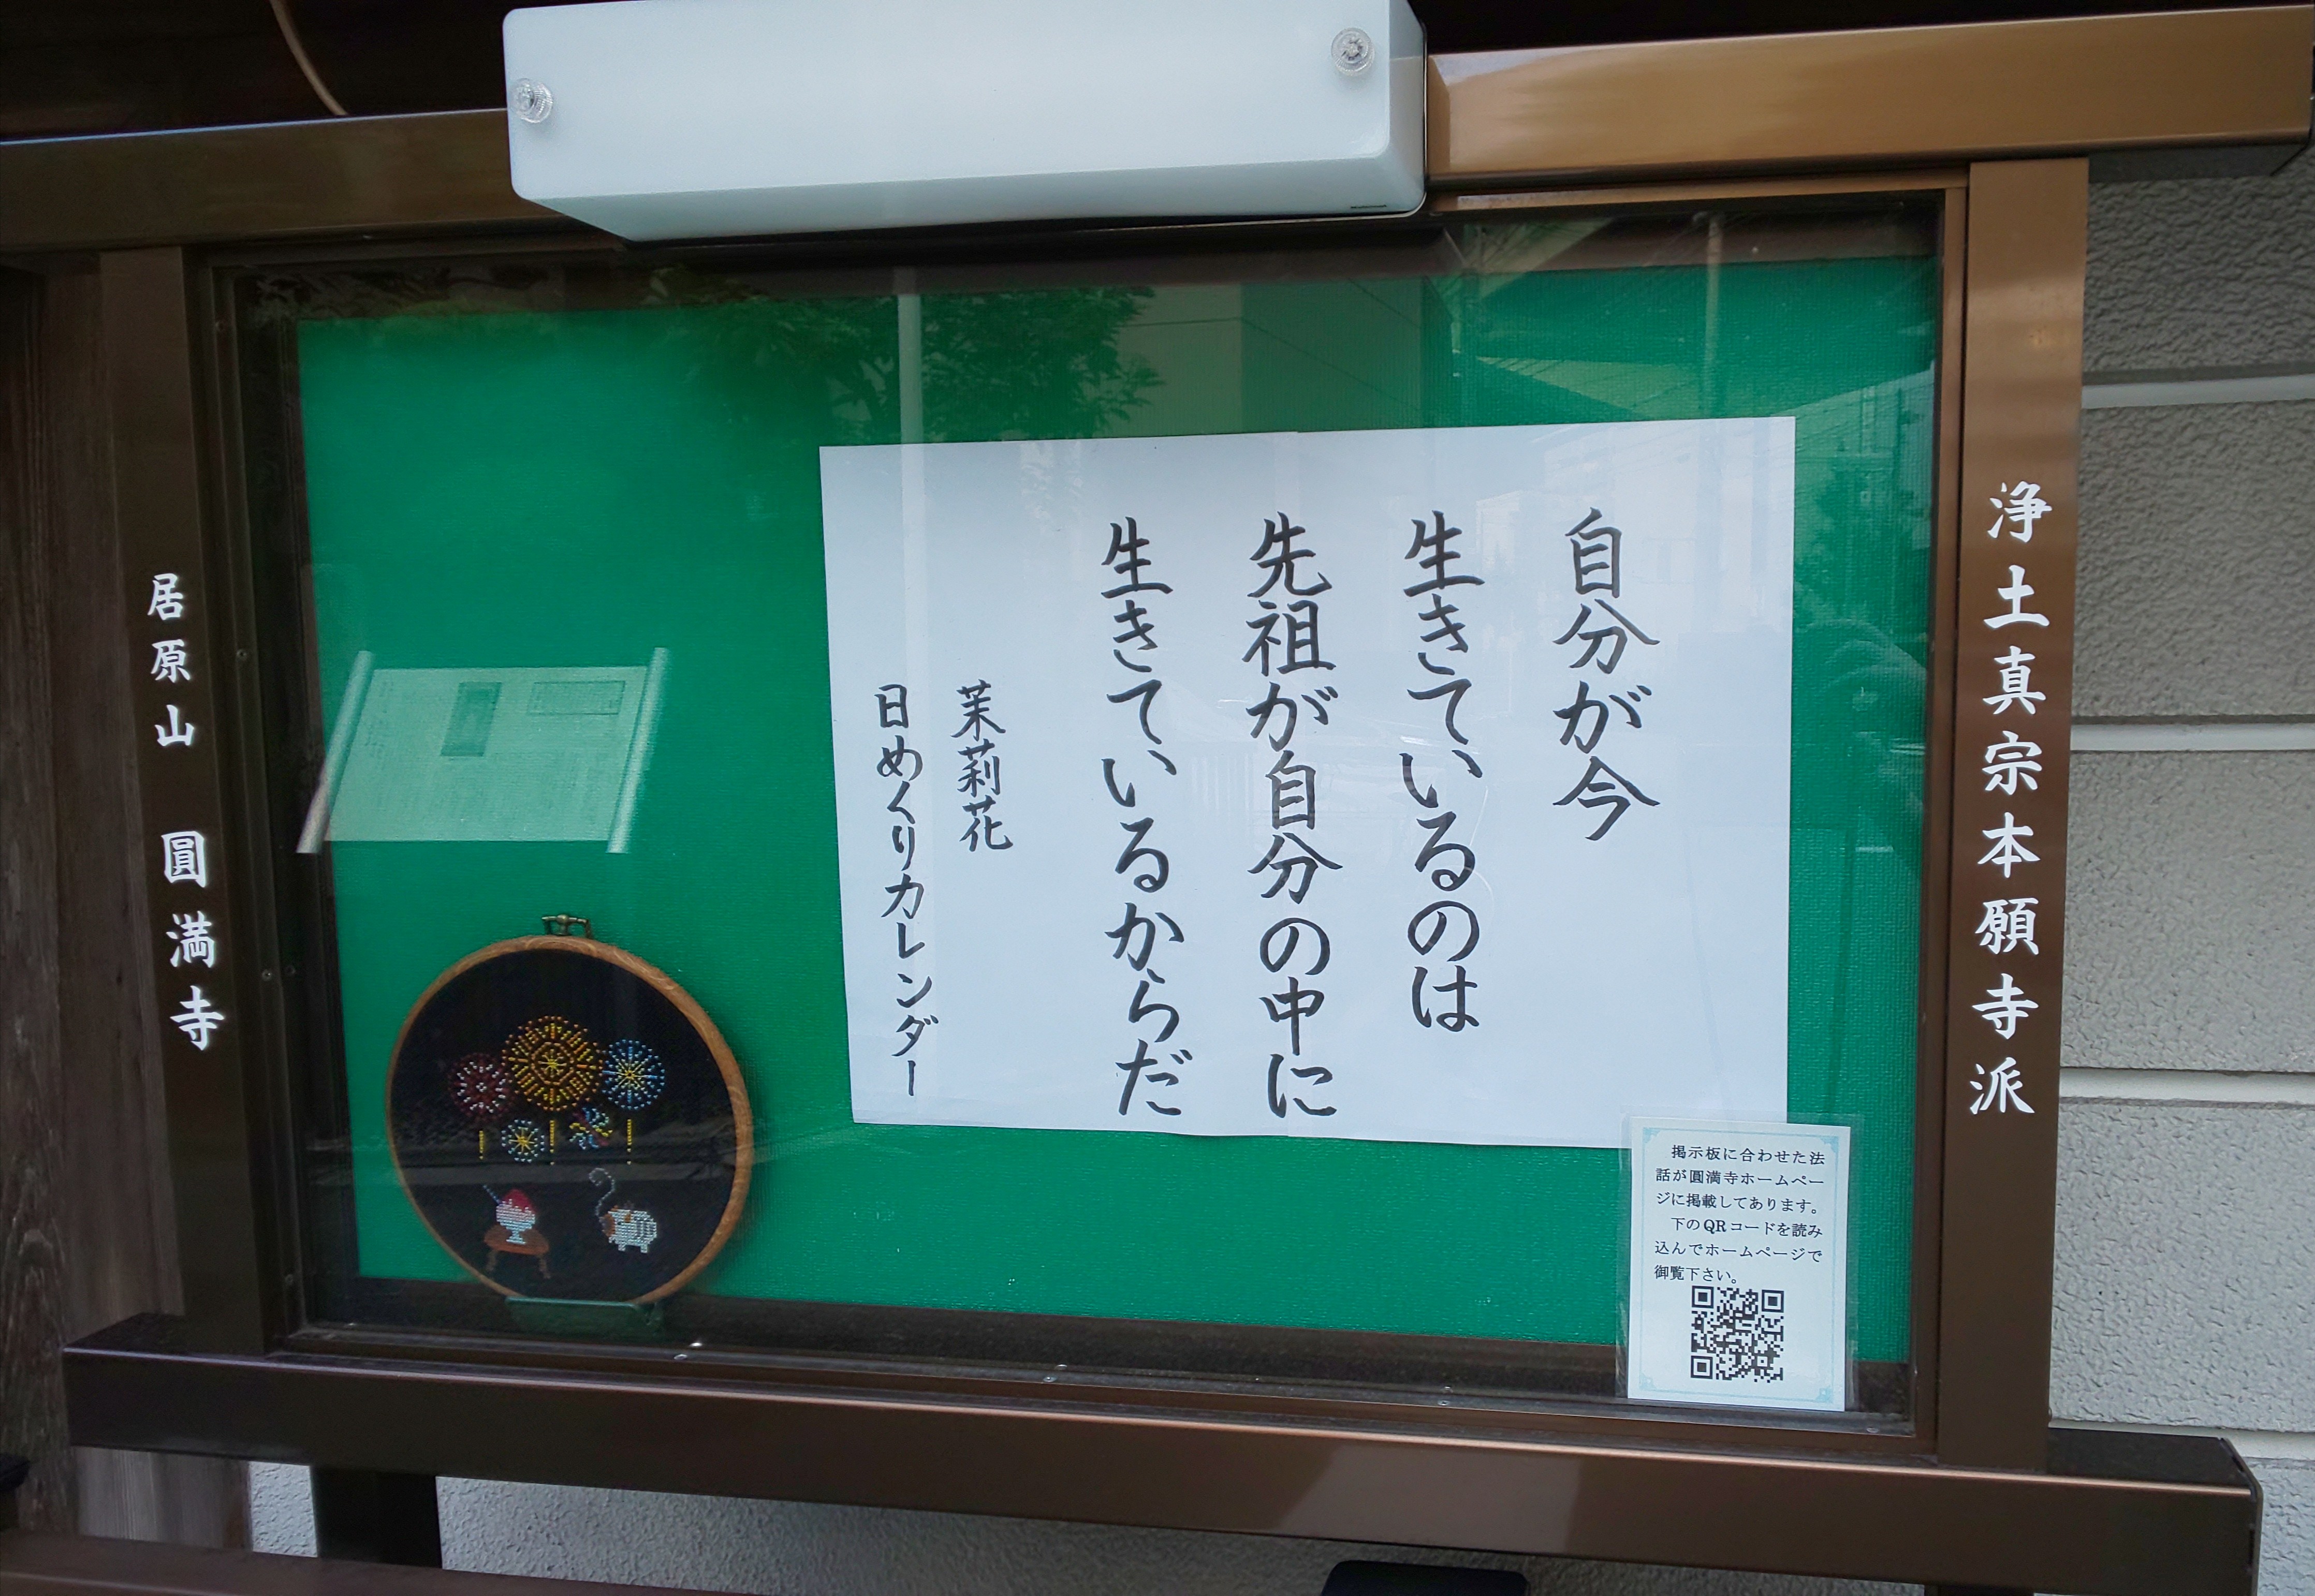 浄土真宗本願寺派
自分が今
生きているのは
先祖が自分の中に
生きているからだ
茉莉花
日めくりカレンダー
居原山 圓満寺
掲示板に合わせた法
話が圓満寺ホームペー
ジに掲載してあります。
下のQRコードを読み
込んでホームページで
御覧下さい。